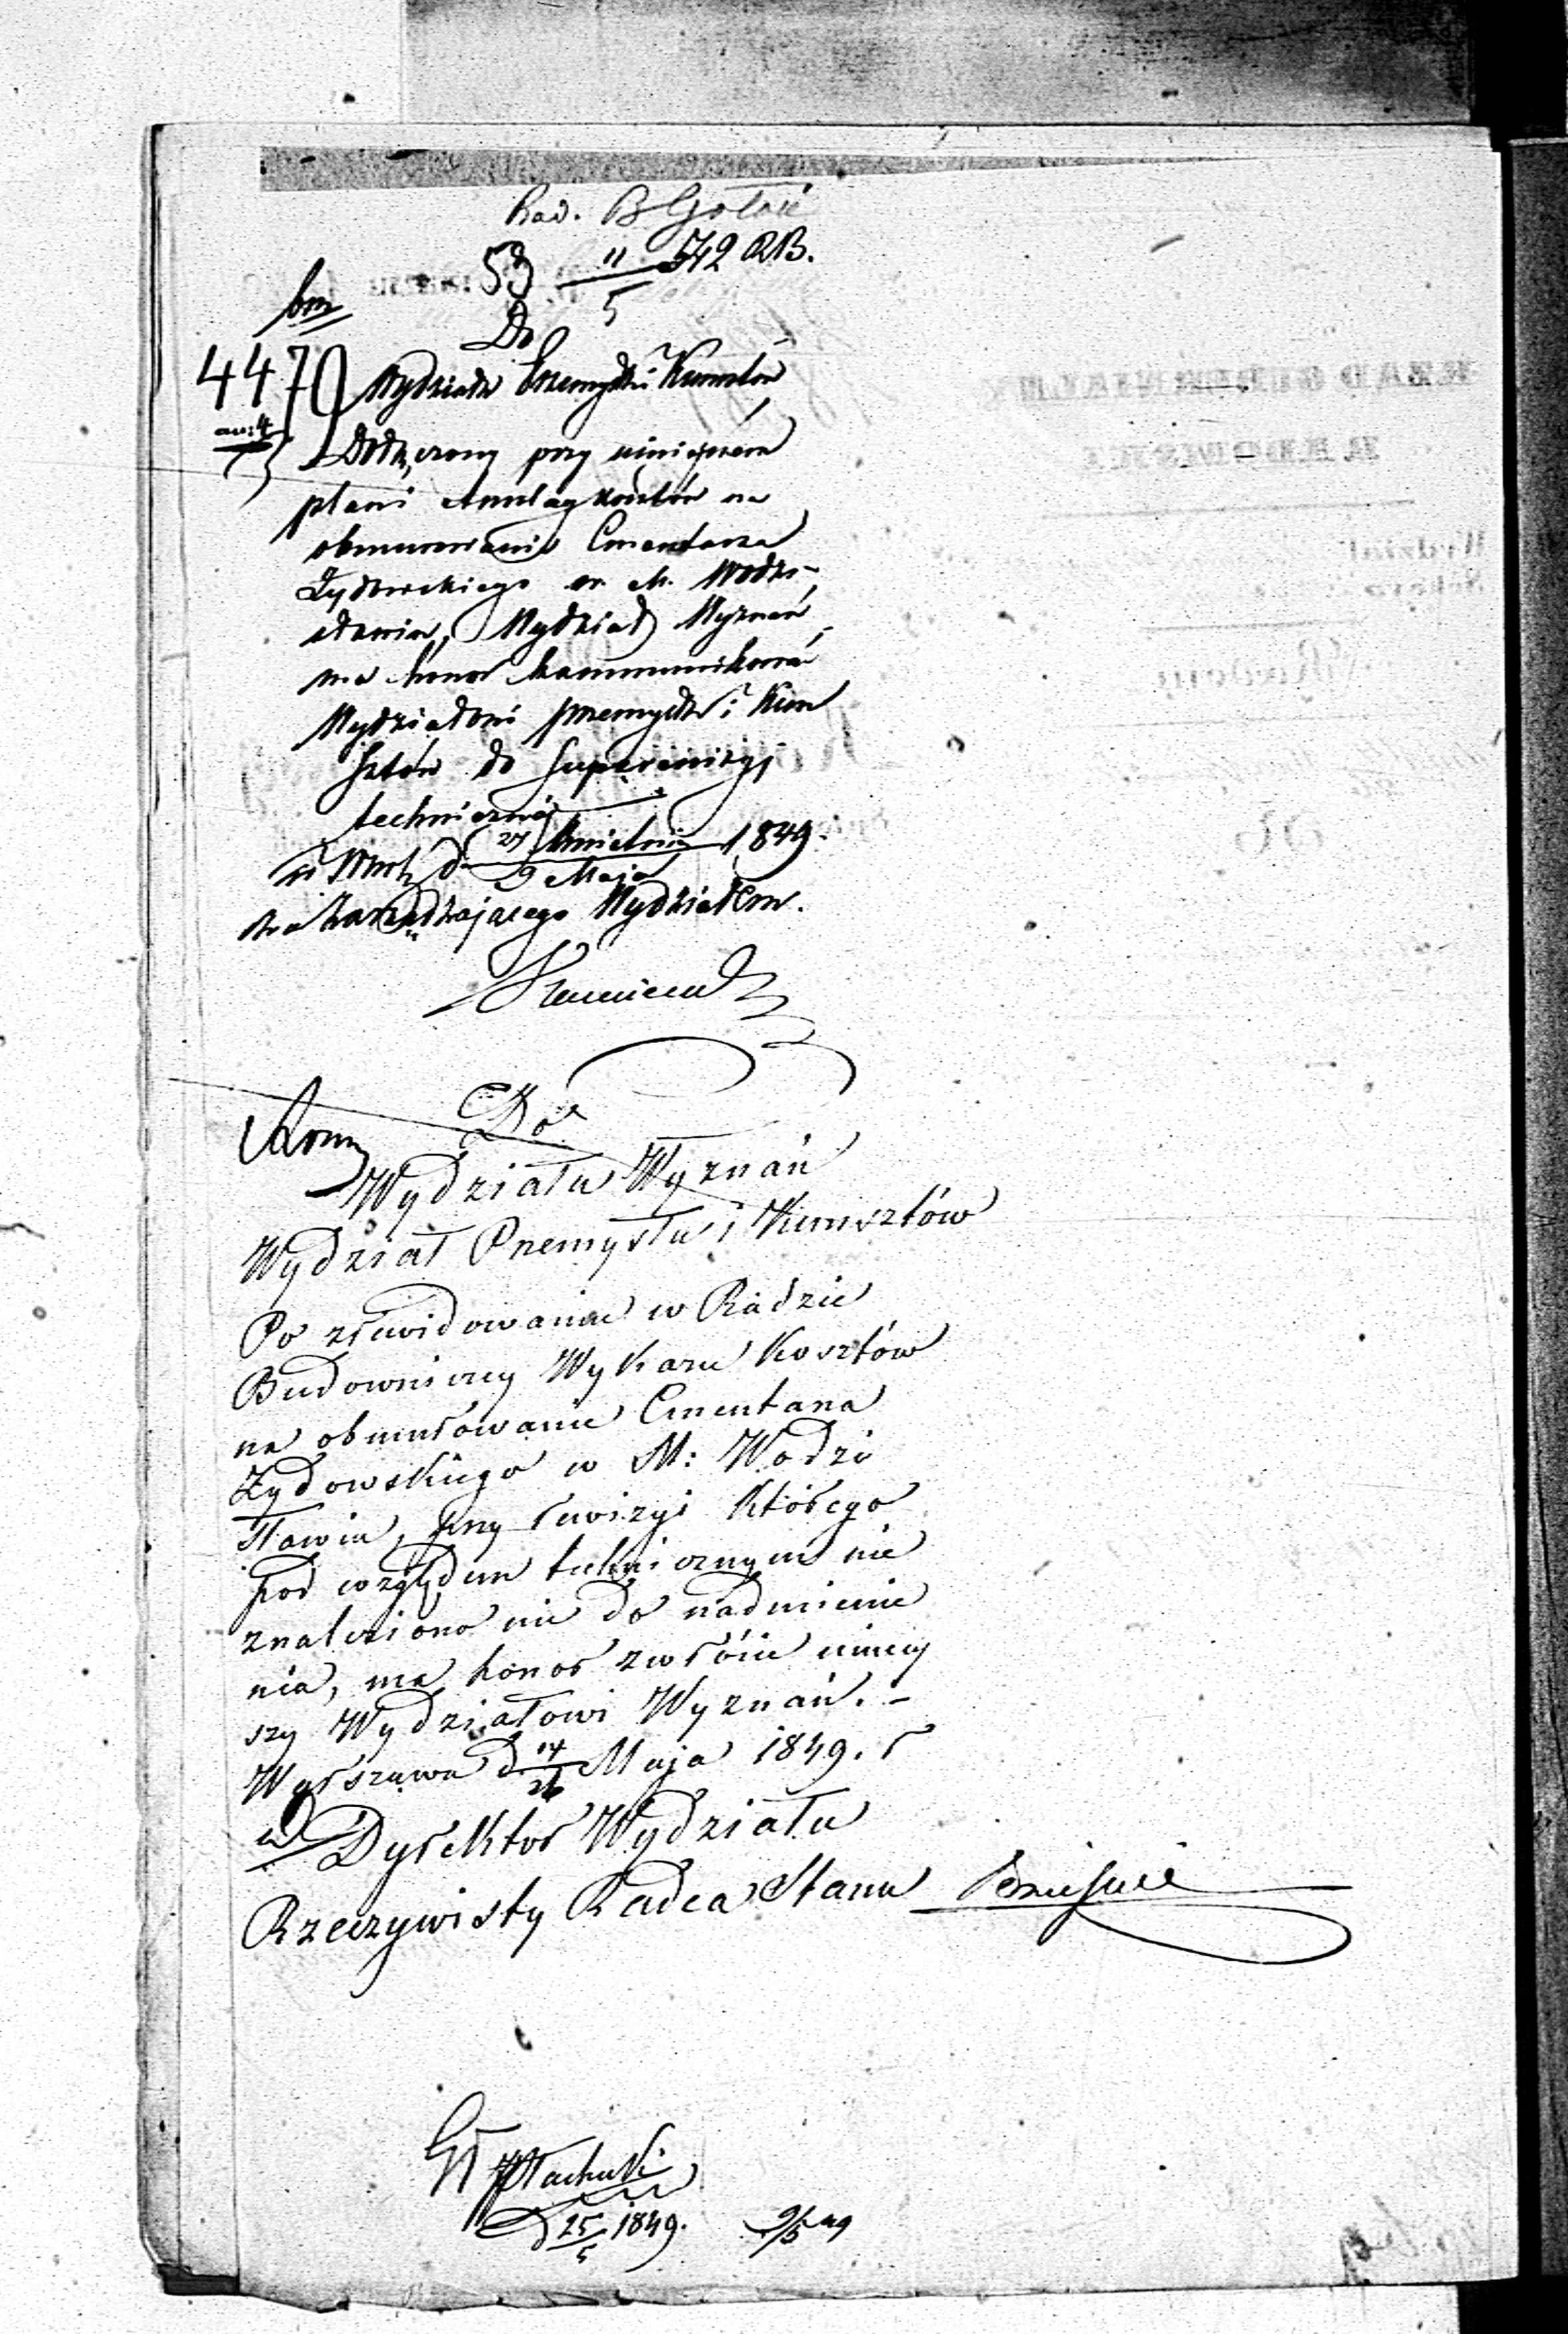 Rad. B Gołoń
53 11/5 542 RB.
Do
4470 Wydziału Przemysłu i Kunsztów
Dołączony przy niniejszem
plan i Anszlag kosztów na
obmurowanie Cmentarza
Żydowskiego w M. Wodzi-
sławiu, Wydział Wyznań
ma honor kommunikować
Wydziałowi przemysłu i Kun
sztów do superrewizyi
technicznéj
w Warsz. d. 27 Kwietnia / 9 Maja 1849.
za Zarządzającego Wydziałem.
Do
Wydziału Wyznań
Wydział Przemysłu i Kunsztów
Po zrewidowaniu w Radzie
Budowniczey Wykazu Kosztów
na obmurowanie Cmentarza
Żydowskiego w M: Wodzi
sławiu, przy rewizyi którego
pod względem technicznym nic
znaleziono nie do nadmienie
nia, ma honor zwrócić niniey
szy Wydziałowi Wyznań. -
Warszawa d 14/26 Maja 1849. r
Dyrektor Wydziału
Rzeczywisty Radca Stanu
d 25/5 1849. 9/5 49